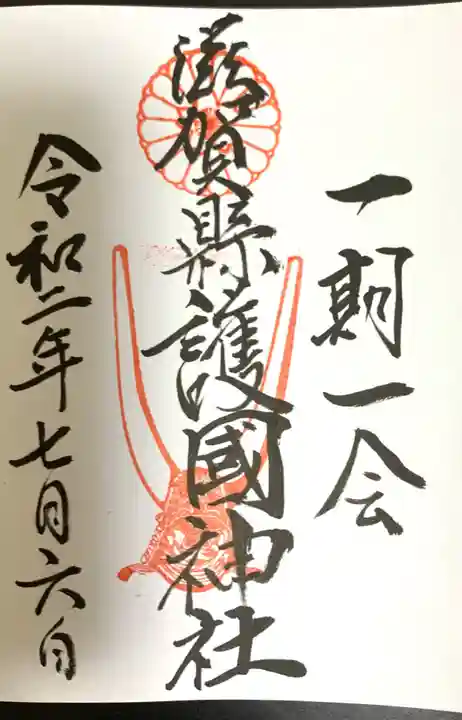 一期一会
滋賀縣護國神社
令和二年七月六日